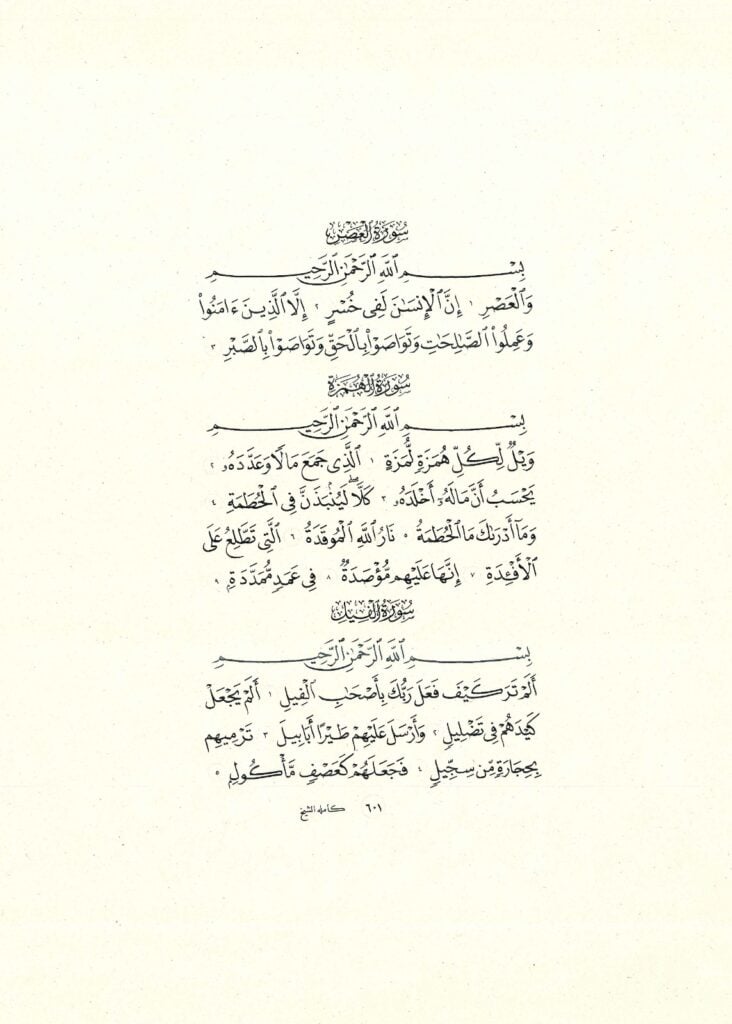 سُورَةُ العَصْرِ
بِسْمِ اللَّهِ الرَّحْمَٰنِ الرَّحِيمِ
وَٱلْعَصْرِ ١ إِنَّ ٱلْإِنسَٰنَ لَفِى خُسْرٍ ٢ إِلَّا ٱلَّذِينَ ءَامَنُوا۟
وَعَمِلُوا۟ ٱلصَّٰلِحَٰتِ وَتَوَاصَوْا۟ بِٱلْحَقِّ وَتَوَاصَوْا۟ بِٱلصَّبْرِ ٣
سُورَةُ الهُمَزَةِ
بِسْمِ اللَّهِ الرَّحْمَٰنِ الرَّحِيمِ
وَيْلٌ لِّكُلِّ هُمَزَةٍ لُّمَزَةٍ ١ ٱلَّذِى جَمَعَ مَالًا وَعَدَّدَهُۥ ٢
يَحْسَبُ أَنَّ مَالَهُۥٓ أَخْلَدَهُۥ ٣ كَلَّا ۖ لَيُنۢبَذَنَّ فِى ٱلْحُطَمَةِ ٤
وَمَآ أَدْرَىٰكَ مَا ٱلْحُطَمَةُ ٥ نَارُ ٱللَّهِ ٱلْمُوقَدَةُ ٦ ٱلَّتِى تَطَّلِعُ عَلَى
ٱلْأَفْـِٔدَةِ ٧ إِنَّهَا عَلَيْهِم مُّؤْصَدَةٌ ٨ فِى عَمَدٍ مُّمَدَّدَةٍۭ ٩
سُورَةُ الفِيلِ
بِسْمِ اللَّهِ الرَّحْمَٰنِ الرَّحِيمِ
أَلَمْ تَرَ كَيْفَ فَعَلَ رَبُّكَ بِأَصْحَٰبِ ٱلْفِيلِ ١ أَلَمْ يَجْعَلْ
كَيْدَهُمْ فِى تَضْلِيلٍ ٢ وَأَرْسَلَ عَلَيْهِمْ طَيْرًا أَبَابِيلَ ٣ تَرْمِيهِم
بِحِجَارَةٍ مِّن سِجِّيلٍ ٤ فَجَعَلَهُمْ كَعَصْفٍ مَّأْكُولٍۭ ٥
٦٠١ كامله الشيخ